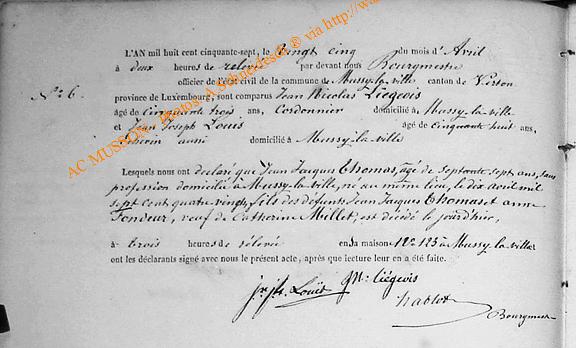 L'AN mil huit cent cinquante-sept, le vingt cinq du mois d'Avril
à deux heures de relevée par devant nous Bourgmestre
officier de l'état civil de la commune de Mussy-la-ville canton de Virton
N.° 6. province de Luxembourg, sont comparus Jean Nicolas Liégeois
âgé de cinquante trois ans, Cordonnier domicilié à Mussy-la-ville
et Jean Joseph Louis âgé de cinquante huit ans,
aussi domicilié à Mussy-la-ville
Lesquels nous ont déclaré que Jean Jacques Thomas, âgé de septante sept ans, sans
profession domicilié à Mussy-la-ville, né au même lieu, le dix avril mil
sept cent quatre-vingt, fils des défunts Jean Jacques Thomas et anne
Fondeur, veuf de Catherine Millet, est décédé le jourd'hier,
à trois heures de relevée en sa maison N° 123 à Mussy-la-ville
ont les déclarants signé avec nous le présent acte, après que lecture leur en a été faite.
Louis JN. Liégeois
Bourgmestre
AC MUSSON, Photos A.Schneidesch ® via http://wa